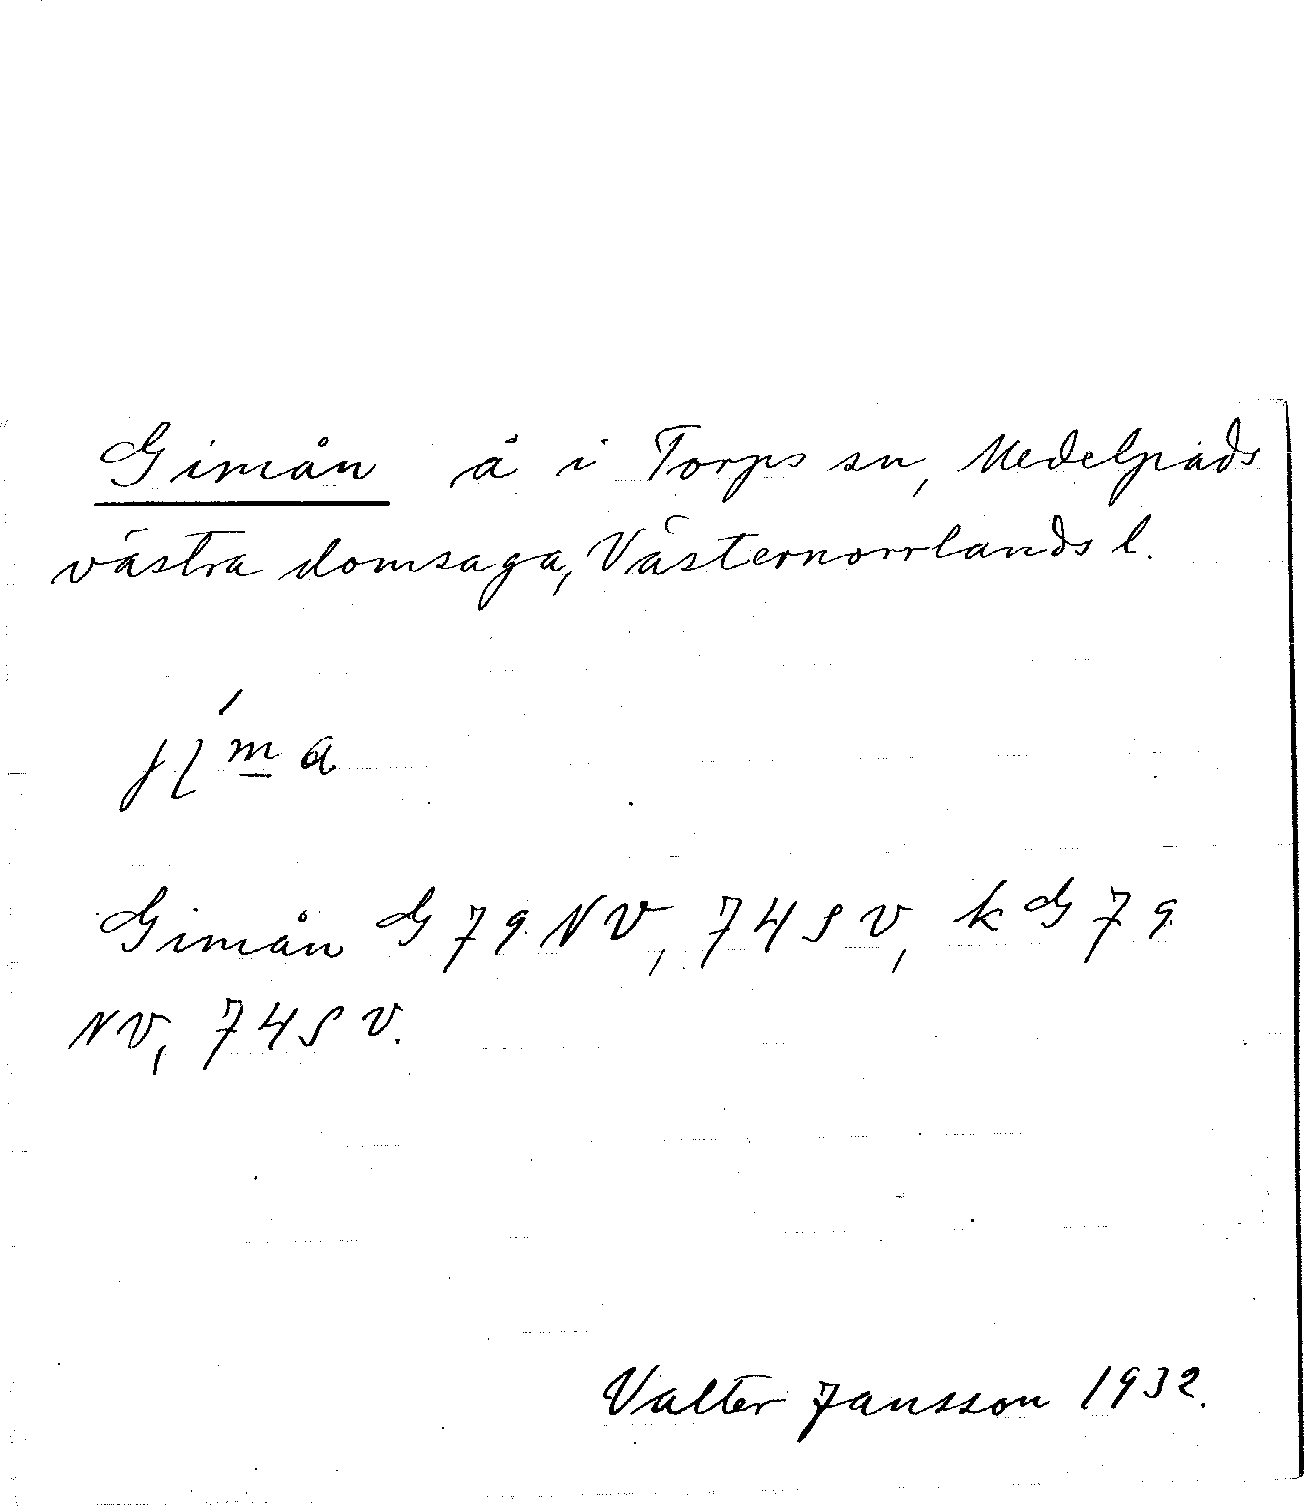 Gimån å i Torps sn, Medelpads
västra domsaga, Västernorrlands l.
Gimån G 79 NV, 74 SV, kG 79
NV, 74 SV.
Valter Jansson 1932.